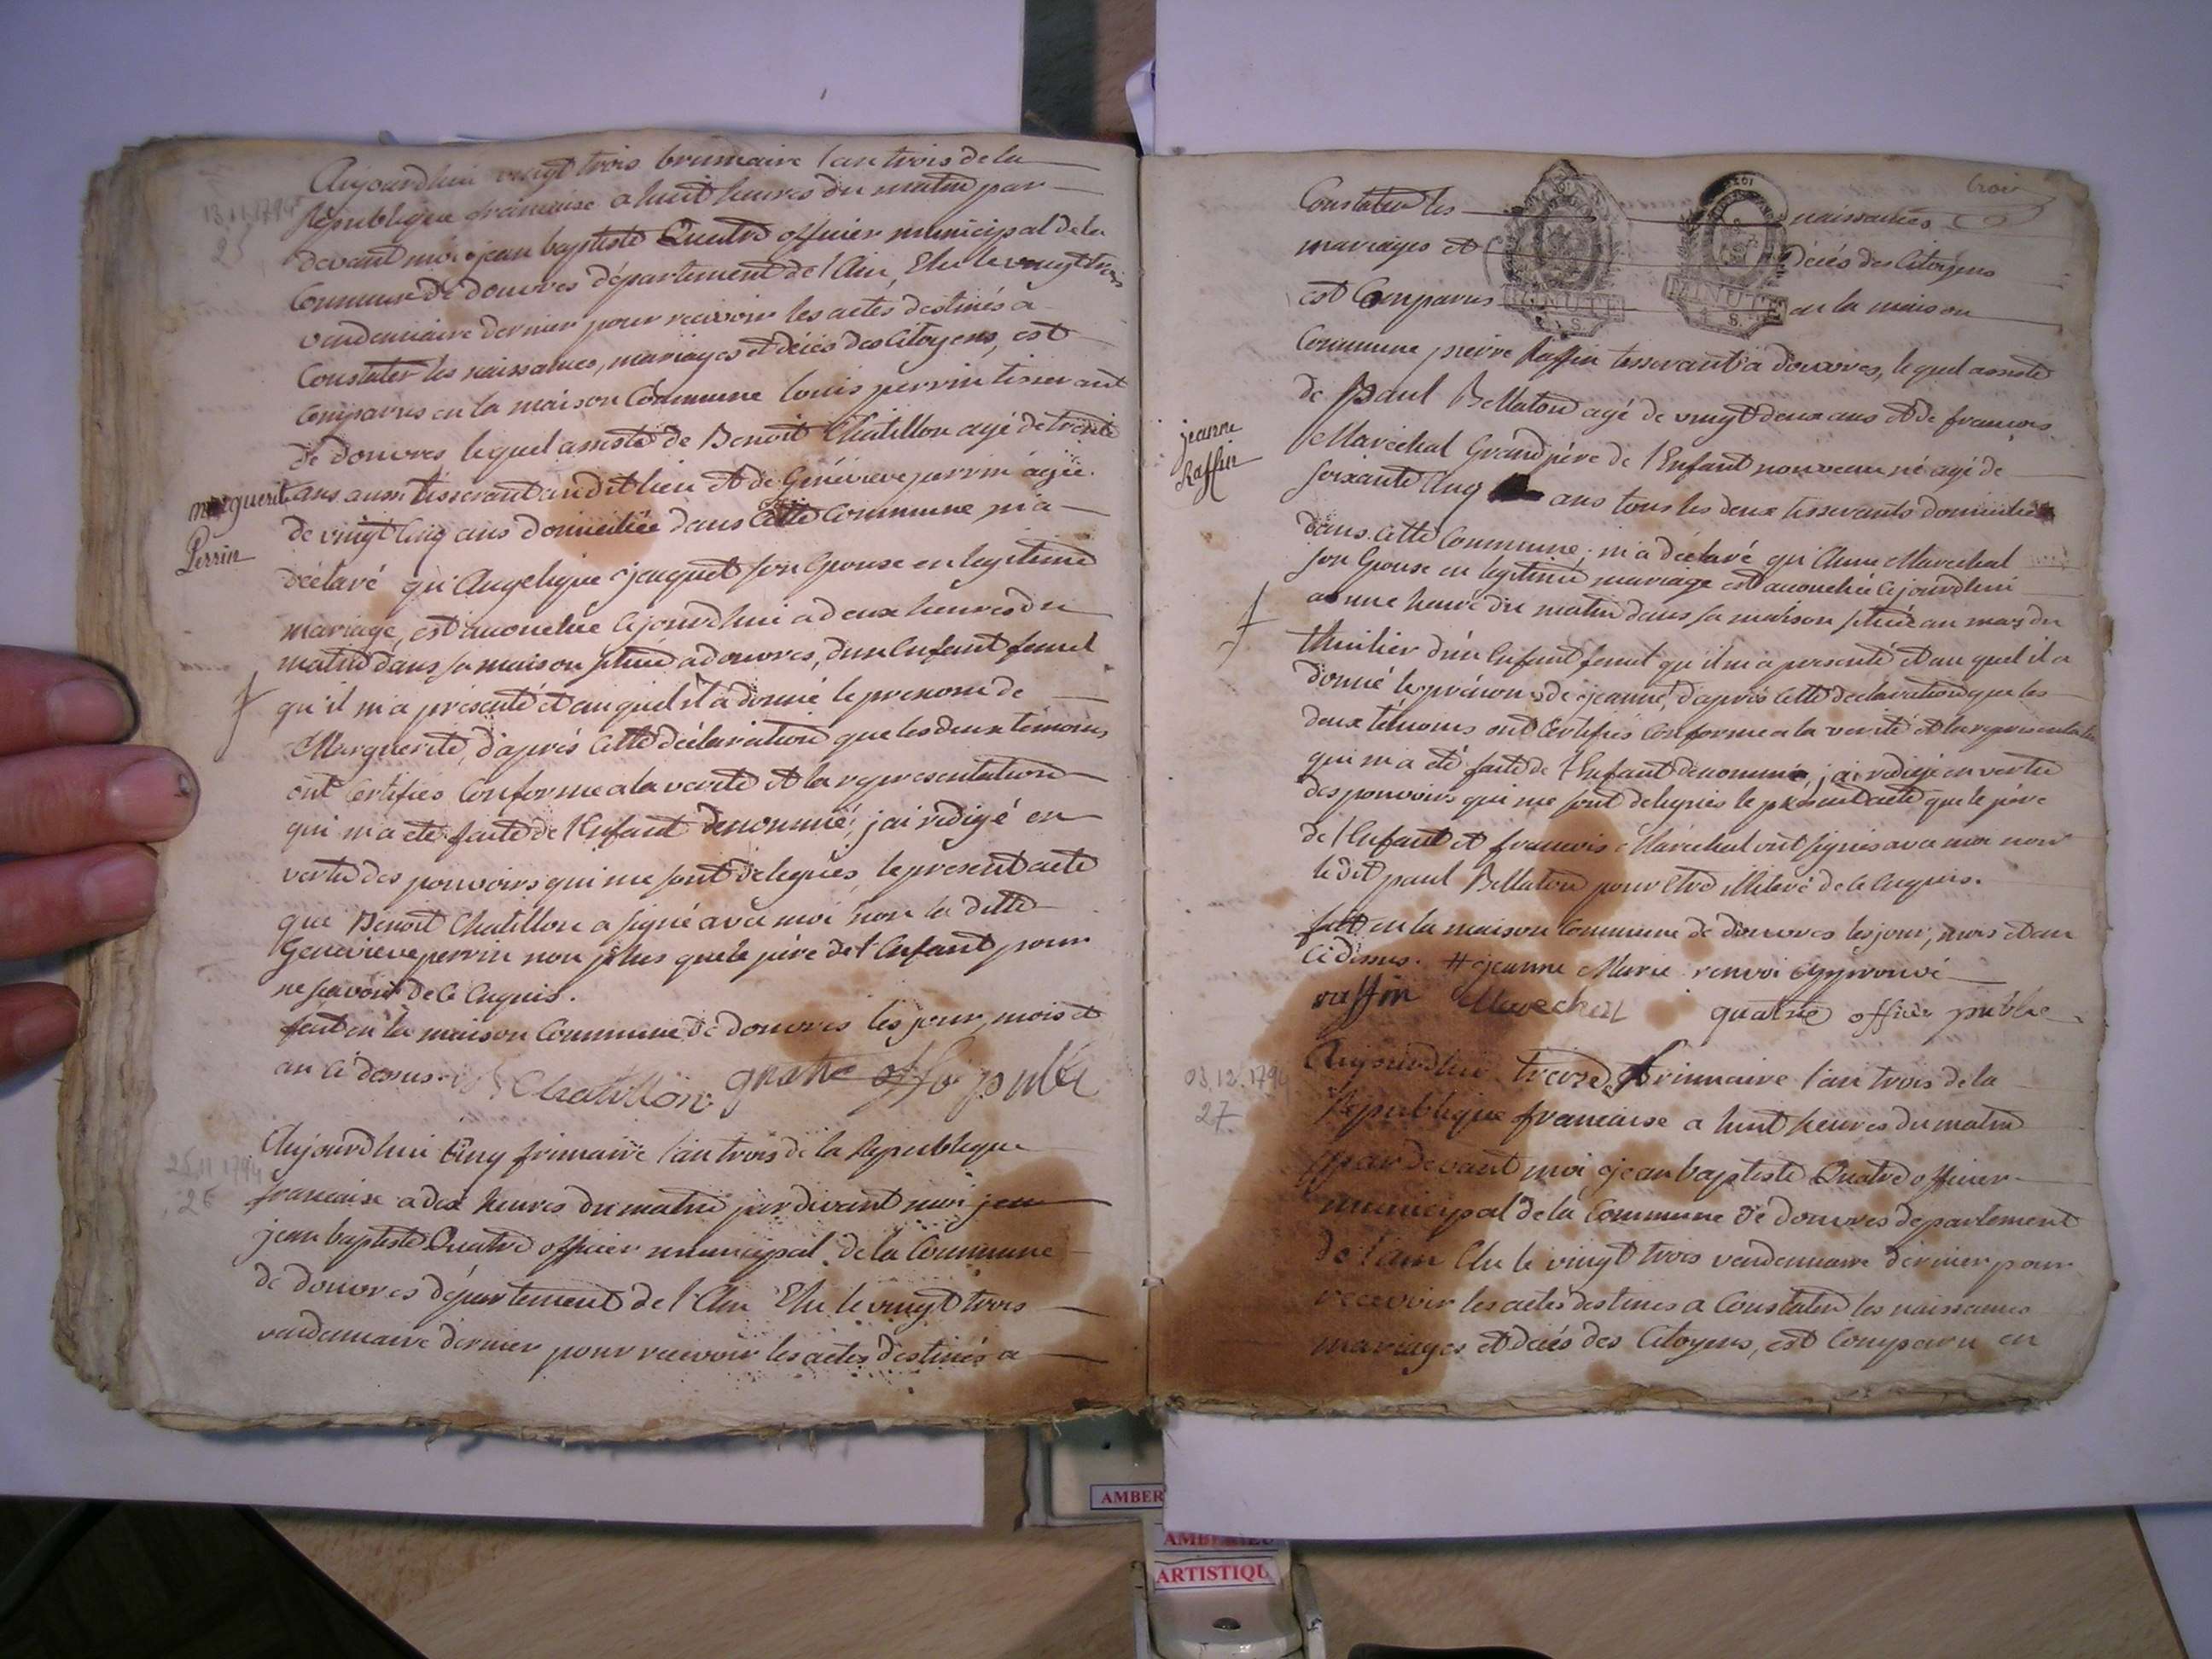 13.11.1794
25
Aujourdhui vingt trois brumaire l'an trois de la
République francaise a huit heures du matin par
devant moi jean baptiste Quatre officier municipal de la
Commune de douvres département de l'Ain, Elu le vingt trois
vendemiaire dernier pour recevoir les actes destinés a
Constater les naissances, mariages et décès des Citoyens, est
Comparus en la maison Commune louis perrin tisserant
de douvres lequel assisté de Benoit Chatillon agé de trente
ans aussi tisserant audit lieu et de Génévieve perrin agée
de vingt Cinq ans domiciliée dans Cette Commune m'a
déclaré qu'Angelique jacquet son Epouse en legitime
mariage, est accouchée Cejourdhui a deux heures du
matin dans sa maison située a douvres, d'un Enfant femel
qu'il m'a présenté et au quel il a donné le prenom de
Marguerite, d'aprés Cette déclaration que les deux témoins
ont Certifiés Conforme a la verité et la representation
qui m'a été faite de l'Enfant denommé, j'ai redigé en
vertu des pouvoirs qui me sont délegués, le present acte
que Benoit Chatillon a signé avec moi non la ditte
Genevieve perrin non plus que le père de l'Enfant pour
ne savoir de Ce Enquis.
fait en la maison Commune de douvres les jour, mois et
an Ci dessus.
Chatillon quatre offi public
marguerite
Perrin
25.11.1794
26
Aujourdhui Cinq frimaire l'an trois de la Republique
francaise a dix heures du matin par devant moi jean
jean baptiste Quatre officier municipal de la Commune
de douvres département de l'Ain Elu le vingt trois
vendemiaire dernier pour recevoir les actes destinés a
trois
Constater les naissances
mariages et décés des Citoyens
est Comparus en la maison
MINUTE
MINUTE
4 S.
Commune pierre Raffin tisserant a douvres, lequel assisté
de Paul Bellaton agé de vingt deux ans et de francois
Maréchal Grand père de l'Enfant nouveau né agé de
soixante Cinq ans tous les deux tisserants domiciliés
dans Cette Commune; m'a déclaré qu'Anne Marechal
son Epouse en legitime mariage est accouchée Cejourdhui
a une heure du matin dans sa maison située au mas du
thuilier d'un Enfant femel qu'il m'a presenté et au quel il a
donné le prénom de jeanne, d'aprés Cette declaration que les
deux témoins ont Certifiés Conforme a la verité et la representation
qui m'a été faite de l'Enfant denommé, j'ai redigé en vertu
des pouvoirs qui me sont delegués le présent acte que le père
de l'Enfant et francois Maréchal ont signés avec moi non
le dit paul Bellaton pour Etre illiteré de Ce Enquis.
fait en la maison Commune de douvres les jour, mois et an
Ci dessus. # jeanne Marie renvoi approuvé
raffin Marechal quatre officier public
jeanne
Raffin
03.12.1794
27
Aujourdhui treize frimaire l'an trois de la
République francaise a huit heures du matin
par devant moi jean baptiste Quatre officier
municipal de la Commune de douvres departement
de l'ain Elu le vingt trois vendemiaire dernier pour
recevoir les actes destinés a Constater les naissances
mariages et décés des Citoyens, est Comparu en
AMBER
AMBERIEU
ARTISTIQU